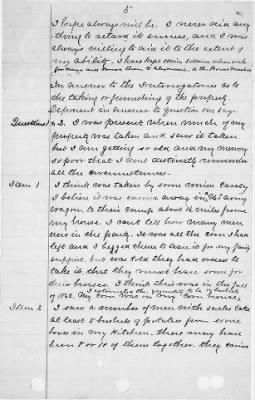 5
I hope always will be. I never did any
thing to retard its success, and I was
always willing to aid it to the extent of
my ability. I have kept Union soldiers when sick
for days and
In answer to the Interrogatories as to
the taking or furnishing of the property
Deponent in answer to question one says:
Question & 2. I was present when much of my
property was taken and saw it taken
but I am getting so old and my memory
so poor that I dont distinctly remember
all the circumstances.
Item 1 I think was taken by some Union Cavalry
I believe it was carried away in old army
wagon to their camp about ½ miles from
my house. I cant tell how many men
were in the party. It was all the corn I had
left and I begged them to leave it for my family
support. but was told they had orders to
take it, that they must have some for
their horses. I think this was in the fall
of 1862. My corn was in my corn house,
I estimated the quantity to be bushels
Item 2 I saw a number of men with sacks take
at least 8 bushels of potatoes from some
boxes in my kitchen. there may have
been 8 or 10 of them together. they carried